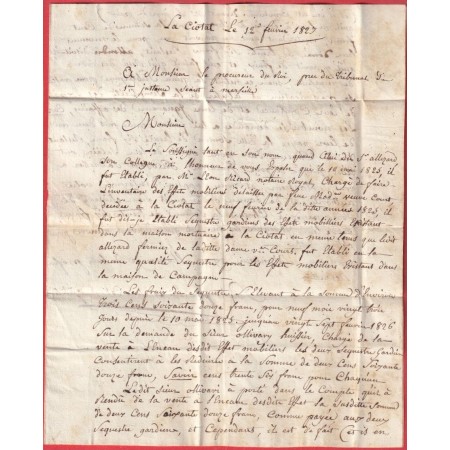 La Ciotat Le 12 fevrier 1827
A Monsieur le procureur du Roi, près du Tribunal de
1ere Instance Seant a marseille
Monsieur
Le Soussigné tant en son nom, quand Celui du Sr allegard
son Collegue, à l'honneur de vous Exposer que le 10 mai 1825, il
fut Etabli, par Me notaire Royal, Chargé de faire
L'inventaire des Effets mobiliers delaissés par feue Made veuve Couret
decedée a la Ciotat le neuf fevrier de la dite année 1825, il
fut dis-je Etabli Sequestre gardien des Effets mobiliers Existant
dans la maison mortuaire a la Ciotat en meme tems que led
allegard fermier de ladite dame ve Couret, fut Etabli en la
meme qualité Sequestre pour les Effets mobiliers Existant dans
la maison de Campagne.
Les frais du Sequestre S'Elevant à la Somme d'Environ
Trois Cens Soixante francs, pour neuf mois vingt trois
jours depuis le 10 mai 1825 jusqu'au vingt Sept fevrier 1826
Sur la demande du Sieur ollivary huissier, Chargé de la
vente a L'encan desdits Effets mobiliers, les deux Sequestres gardiens
Consentirent à les reduire a la Somme de deux Cens Soixante
douze francs, Savoir Cens trente Six francs pour Chaqun.
Ledit Sieur ollivari a porté dans le Compte qu'il a
Rendu de la vente a l'encan desdits Effets la Susditte Somme
de deux Cens Soixante douze francs, Comme payée aux deux
Sequestres gardiens, et Cependant, il est de fait Ces en